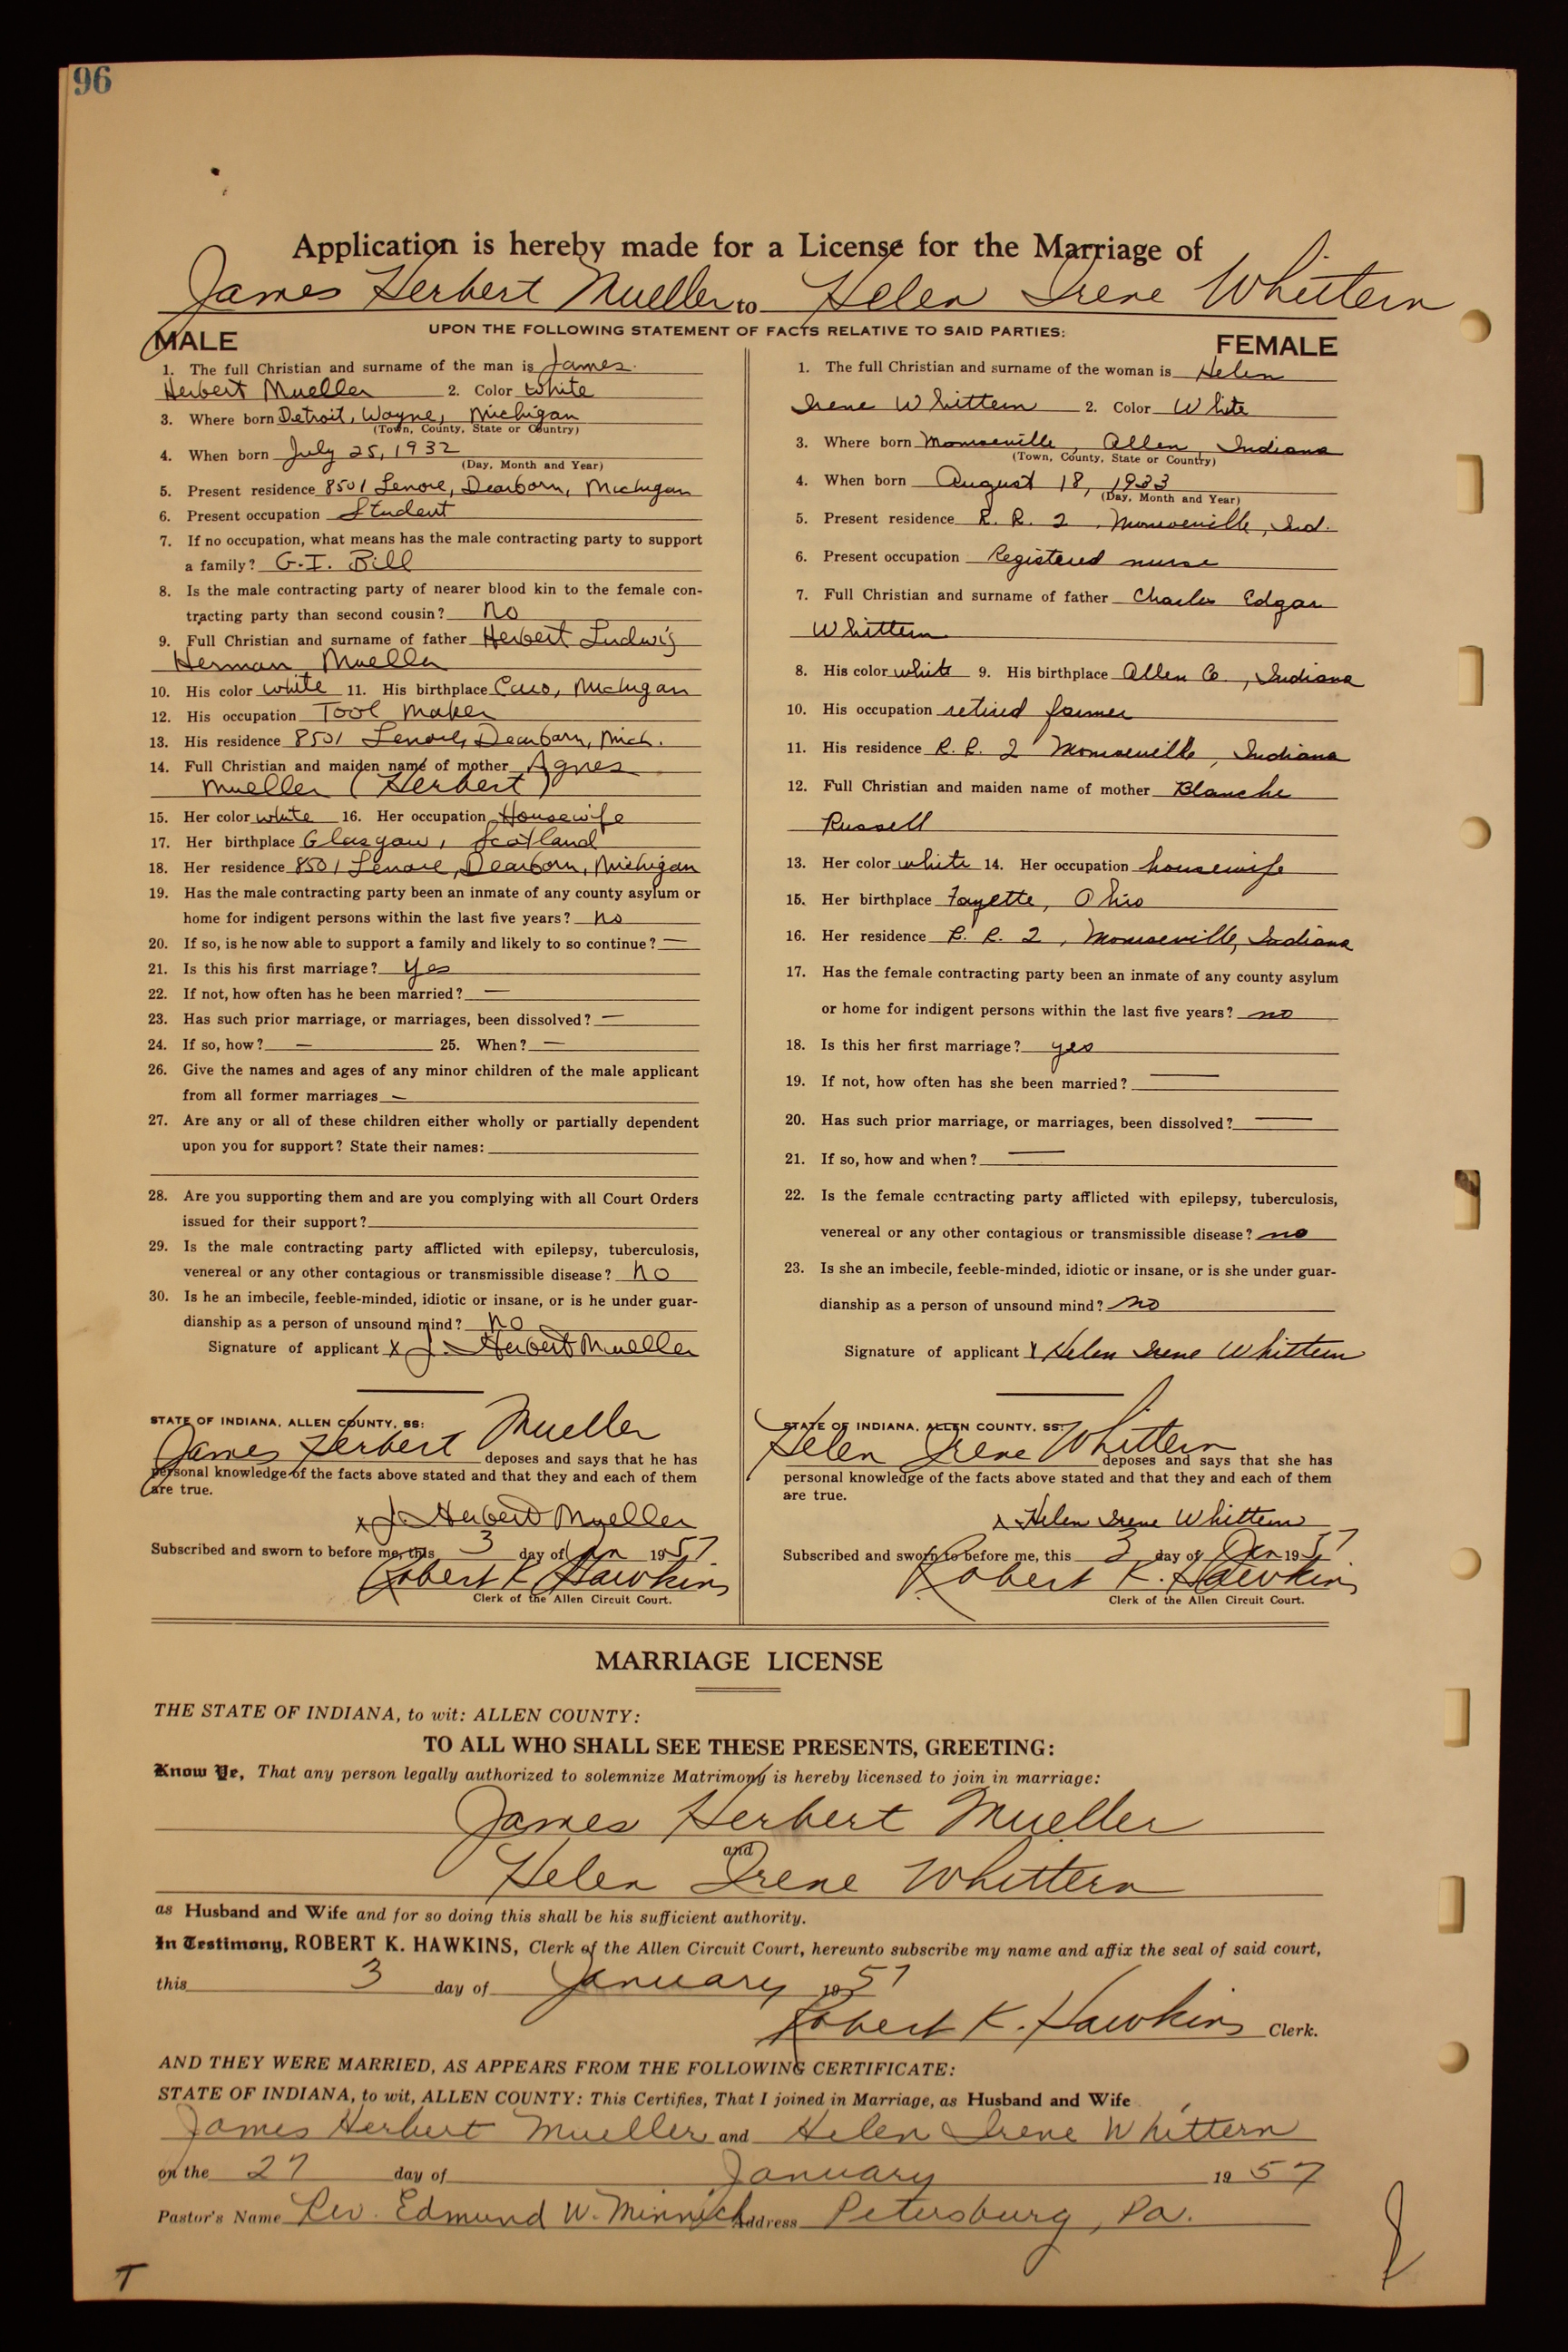 96
Application is hereby made for a License for the Marriage of
James Herbert Mueller to Helen Irene Whittern
UPON THE FOLLOWING STATEMENT OF FACTS RELATIVE TO SAID PARTIES:
MALE
1. The full Christian and surname of the man is James
Herbert Mueller 2. Color White
3. Where born Detroit, Wayne, Michigan
(Town, County, State or Country)
4. When born July 25, 1932
(Day, Month and Year)
5. Present residence 8501 Lenore, Dearborn, Michigan
6. Present occupation Student
7. If no occupation, what means has the male contracting party to support
a family? G.I. Bill
8. Is the male contracting party of nearer blood kin to the female con-
tracting party than second cousin? no
9. Full Christian and surname of father Herbert Ludwig
Herman Mueller
10. His color white 11. His birthplace Caro, Michigan
12. His occupation Tool Maker
13. His residence 8501 Lenore, Dearborn, Mich.
14. Full Christian and maiden name of mother Agnes
Mueller (Herbert)
15. Her color white 16. Her occupation Housewife
17. Her birthplace Glasgow, Scotland
18. Her residence 8501 Lenore, Dearborn, Michigan
19. Has the male contracting party been an inmate of any county asylum or
home for indigent persons within the last five years? no
20. If so, is he now able to support a family and likely to so continue? —
21. Is this his first marriage? yes
22. If not, how often has he been married? —
23. Has such prior marriage, or marriages, been dissolved? —
24. If so, how? — 25. When? —
26. Give the names and ages of any minor children of the male applicant
from all former marriages —
27. Are any or all of these children either wholly or partially dependent
upon you for support? State their names:
28. Are you supporting them and are you complying with all Court Orders
issued for their support?
29. Is the male contracting party afflicted with epilepsy, tuberculosis,
venereal or any other contagious or transmissible disease? no
30. Is he an imbecile, feeble-minded, idiotic or insane, or is he under guar-
dianship as a person of unsound mind? no
Signature of applicant x J. Herbert Mueller
STATE OF INDIANA, ALLEN COUNTY, SS:
James Herbert Mueller deposes and says that he has
personal knowledge of the facts above stated and that they and each of them
are true.
x J. Herbert Mueller
Subscribed and sworn to before me, this 3 day of Jan 1957
Robert K Hawkins
Clerk of the Allen Circuit Court.
FEMALE
1. The full Christian and surname of the woman is Helen
Irene Whittern 2. Color White
3. Where born Monroeville, Allen, Indiana
(Town, County, State or Country)
4. When born August 18, 1933
(Day, Month and Year)
5. Present residence R. R. 2, Monroeville, Ind.
6. Present occupation Registered nurse
7. Full Christian and surname of father Charles Edgar
Whittern
8. His color white 9. His birthplace Allen Co., Indiana
10. His occupation retired farmer
11. His residence R. R. 2 Monroeville, Indiana
12. Full Christian and maiden name of mother Blanche
Russell
13. Her color white 14. Her occupation housewife
15. Her birthplace Fayette, Ohio
16. Her residence R. R. 2, Monroeville, Indiana
17. Has the female contracting party been an inmate of any county asylum
or home for indigent persons within the last five years? no
18. Is this her first marriage? yes
19. If not, how often has she been married? —
20. Has such prior marriage, or marriages, been dissolved? —
21. If so, how and when? —
22. Is the female contracting party afflicted with epilepsy, tuberculosis,
venereal or any other contagious or transmissible disease? no
23. Is she an imbecile, feeble-minded, idiotic or insane, or is she under guar-
dianship as a person of unsound mind? no
Signature of applicant x Helen Irene Whittern
STATE OF INDIANA, ALLEN COUNTY, SS:
Helen Irene Whittern deposes and says that she has
personal knowledge of the facts above stated and that they and each of them
are true.
x Helen Irene Whittern
Subscribed and sworn to before me, this 3 day of Jan 1957
Robert K. Hawkins
Clerk of the Allen Circuit Court.
MARRIAGE LICENSE
THE STATE OF INDIANA, to wit: ALLEN COUNTY:
TO ALL WHO SHALL SEE THESE PRESENTS, GREETING:
Know Ye, That any person legally authorized to solemnize Matrimony is hereby licensed to join in marriage:
James Herbert Mueller
and
Helen Irene Whittern
as Husband and Wife and for so doing this shall be his sufficient authority.
In Testimony, ROBERT K. HAWKINS, Clerk of the Allen Circuit Court, hereunto subscribe my name and affix the seal of said court,
this 3 day of January 1957
Robert K. Hawkins Clerk.
AND THEY WERE MARRIED, AS APPEARS FROM THE FOLLOWING CERTIFICATE:
STATE OF INDIANA, to wit, ALLEN COUNTY: This Certifies, That I joined in Marriage, as Husband and Wife
James Herbert Mueller and Helen Irene Whittern
on the 27 day of January 1957
Pastor's Name Rev. Edmund W. Minnich Address Petersburg, Pa.
T